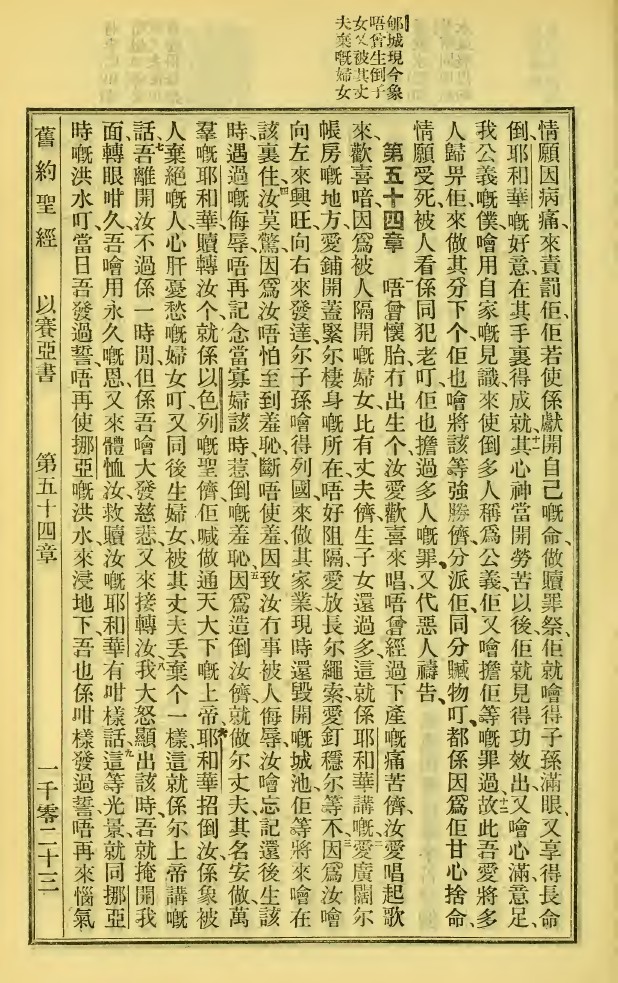 郇城現今象
唔曾生倒子
女又被其丈
夫棄嘅婦女
情願因病痛、來責罰佢、佢若使係獻開自己嘅命、做贖罪祭、佢就噲得子孫滿眼、又享得長命
倒、耶和華嘅好意、在其手裏得成就、十一其心神當開勞苦以後、佢就見得功效出、又噲心滿意足、
我公義嘅僕、噲用自家嘅見識、來使倒多人稱爲公義、佢又噲擔佢等嘅罪過、十二故此吾愛將多
人歸畀佢、來做其分下个、佢也噲將該等強勝儕、分派佢、同分贓物叮、都係因爲佢甘心捨命、
情願受死、被人看係同犯老叮、佢也擔過多人嘅罪、又代惡人禱告、
第五十四章 一唔曾懷胎冇出生个、汝愛歡喜來唱、唔曾經過下產嘅痛苦儕、汝愛唱起歌
來、歡喜喑、因爲被人隔開嘅婦女、比有丈夫儕生子女還過多、這就係耶和華講嘅、二愛廣闊尔
帳房嘅地方、愛鋪開蓋緊尔棲身嘅所在、唔好阻隔、愛放長尔繩索、愛釘穩尔等木、三因爲汝噲
向左來興旺、向右來發達、尔子孫噲得列國、來做其家業、現時還毀開嘅城池、佢等將來噲在
該裏住、四汝莫驚、因爲汝唔怕至到羞恥、斷唔使羞、因致汝冇事被人侮辱、汝噲忘記還後生該
時、遇過嘅侮辱、唔再記念當寡婦該時、惹倒嘅羞恥、五因爲造倒汝儕、就做尔丈夫、其名安做萬
羣嘅耶和華、贖轉汝个、就係以色列嘅聖儕、佢喊做通天大下嘅上帝、六耶和華招倒汝、係象被
人棄絕嘅人、心肝憂愁嘅婦女叮、又同後生婦女、被其丈夫丟棄个一樣、這就係尔上帝講嘅
話、七吾離開汝、不過係一時間、但係吾噲大發慈悲、又來接轉汝、八我大怒顯出該時、吾就掩開我
面、轉眼咁久、吾噲用永久嘅恩、又來體恤汝、救贖汝嘅耶和華、有咁樣話、九這等光景、就同挪亞
時嘅洪水叮、當日吾發過誓、唔再使挪亞嘅洪水、來浸地下、吾也係咁樣發過誓、唔再來惱氣
舊約聖經 以賽亞書 第五十四章 一千零二十三